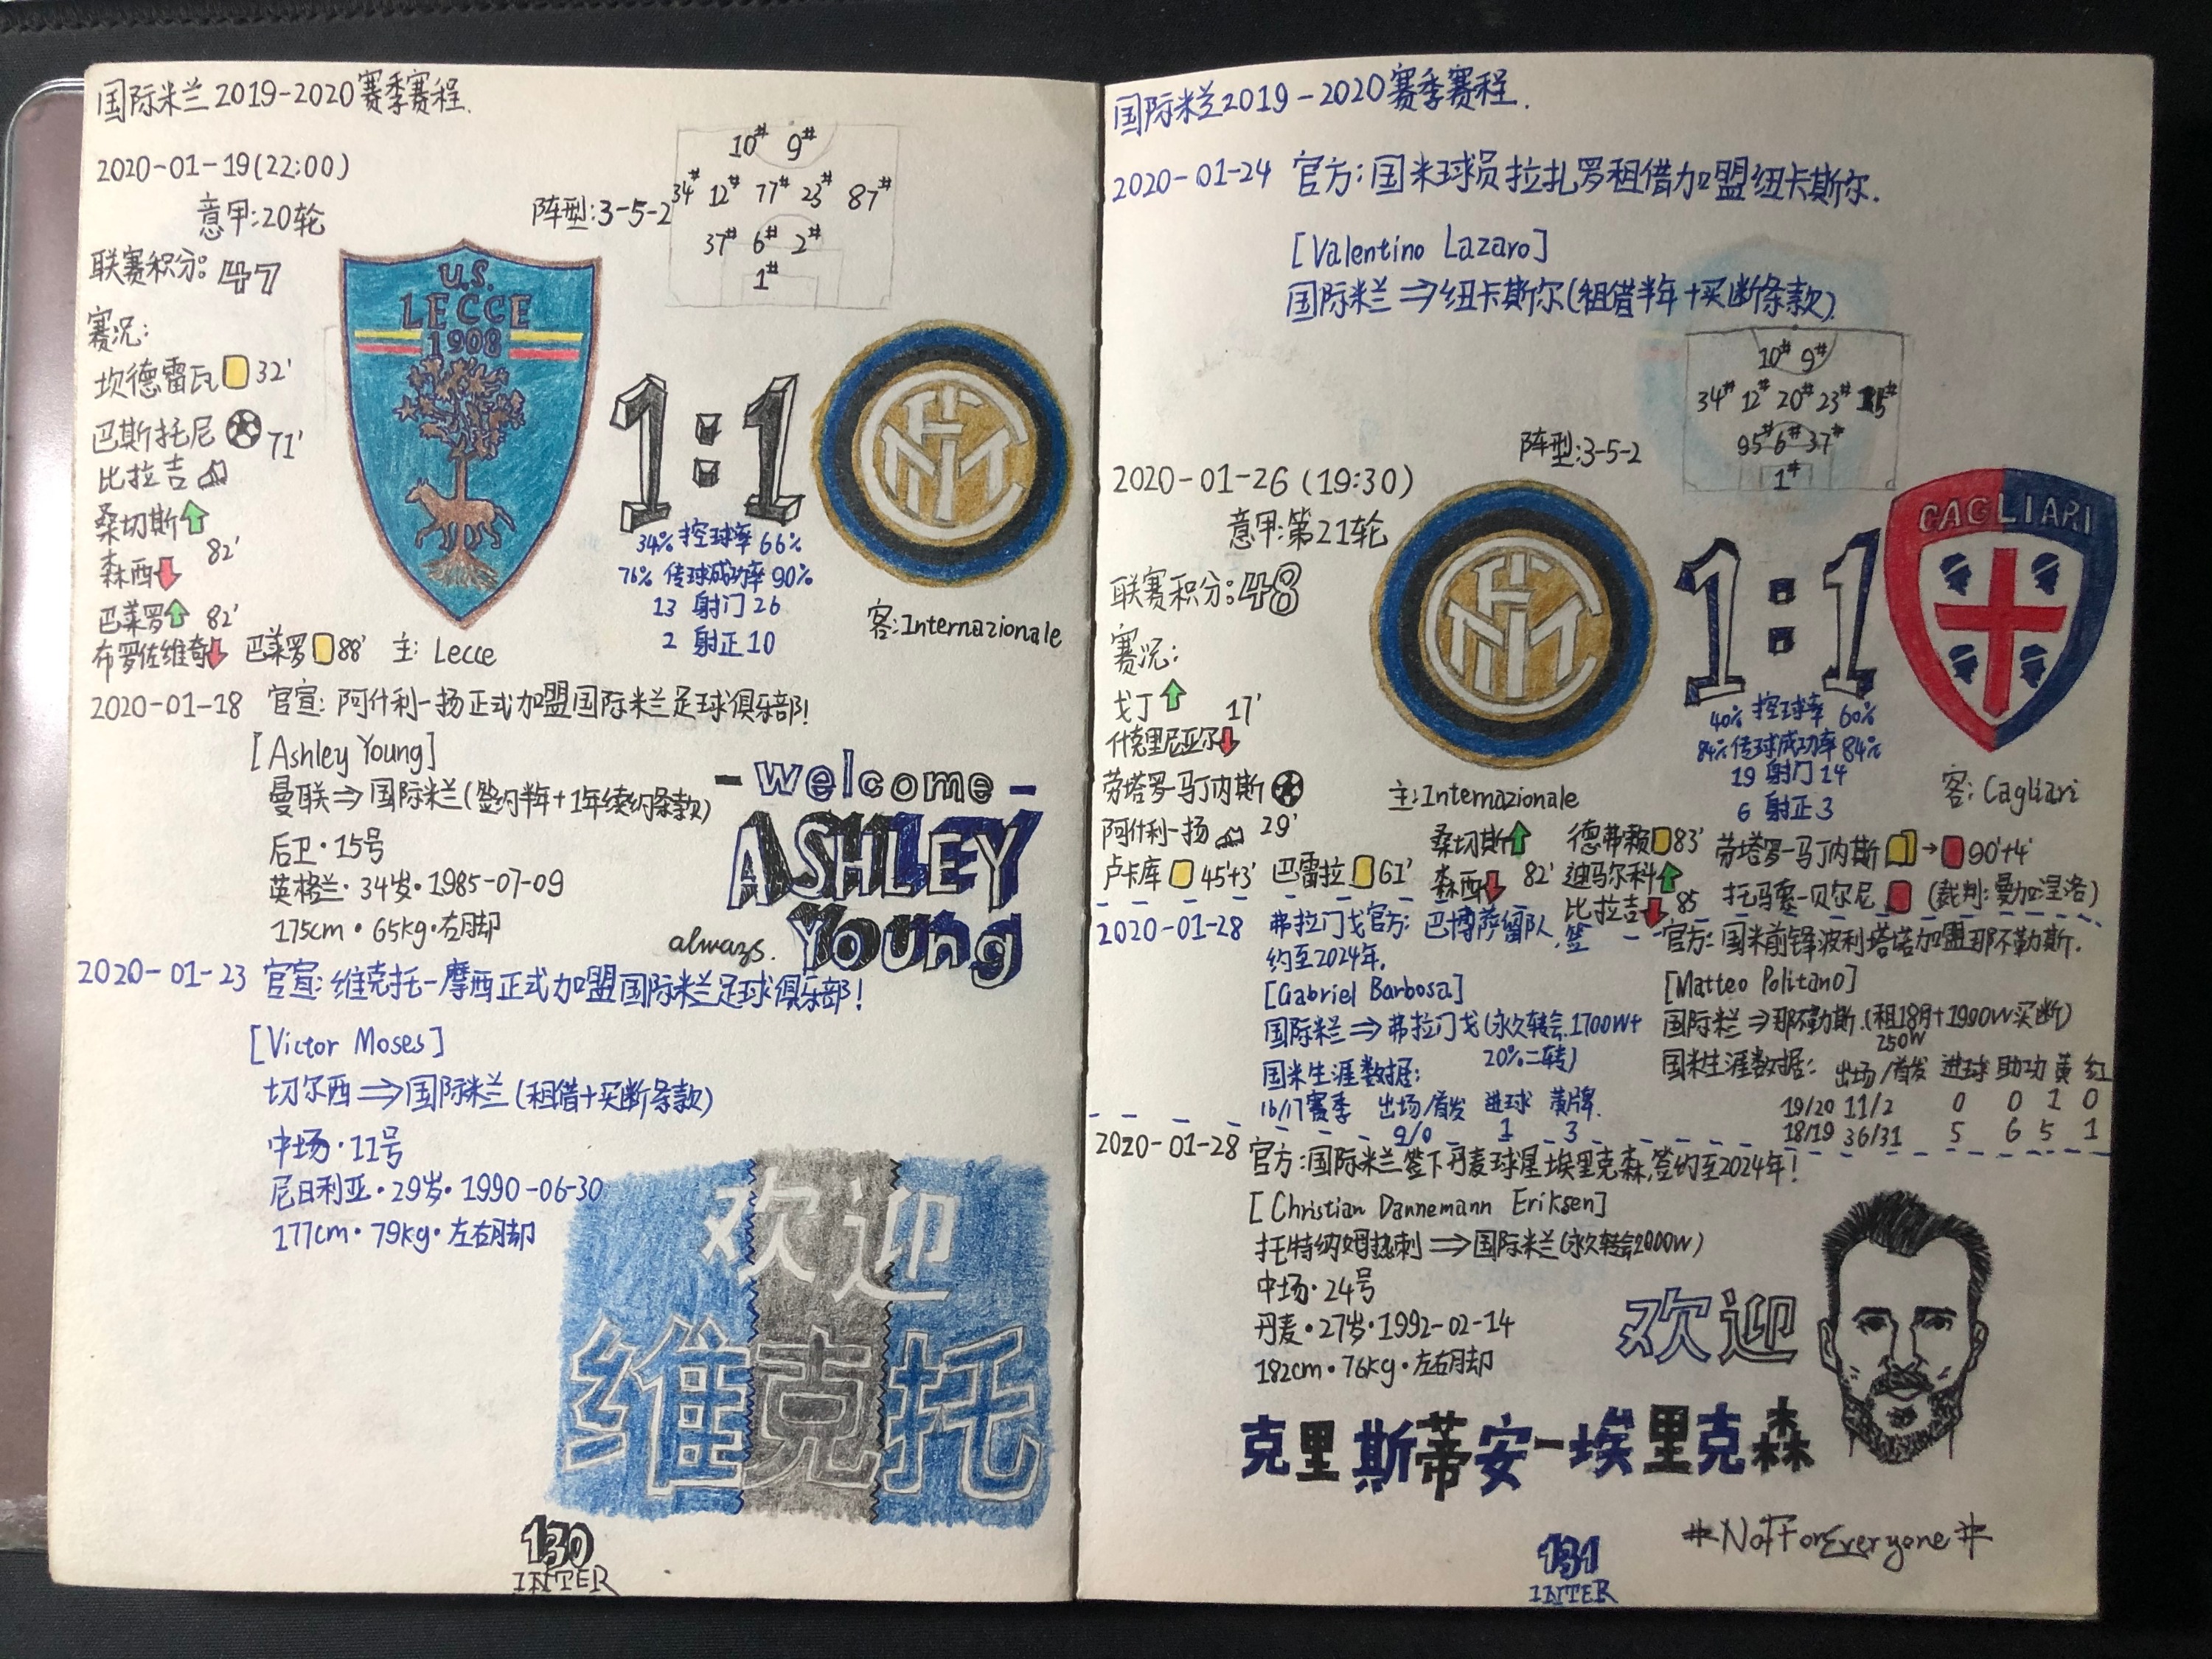 国际米兰2019-2020赛季赛程.
2020-01-19(22:00)
意甲:20轮
阵型:3-5-2
10# 9#
34# 12# 77# 23# 87#
37# 6# 2#
1#
联赛积分:47
赛况:
坎德雷瓦 32'
巴斯托尼 71'
比拉吉
桑切斯
82'
森西
巴莱罗 82'
布罗佐维奇 巴莱罗 88' 主: Lecce
U.S.
LECCE
1908
1:1
34% 控球率 66%
76% 传球成功率 90%
13 射门 26
2 射正 10
客:Internazionale
2020-01-18 官宣: 阿什利-扬正式加盟国际米兰足球俱乐部!
[Ashley Young]
曼联⇒国际米兰(签约半年+1年续约条款)
后卫·15号
英格兰·34岁·1985-07-09
175cm·65kg·右脚
-welcome-
ASHLEY
always. Young
2020-01-23 官宣:维克托-摩西正式加盟国际米兰足球俱乐部!
[Victor Moses]
切尔西⇒国际米兰(租借+买断条款)
中场·11号
尼日利亚·29岁·1990-06-30
177cm·79kg·左右脚
欢迎
维克托
130
INTER
国际米兰2019-2020赛季赛程.
2020-01-24 官方:国米球员拉扎罗租借加盟纽卡斯尔.
[Valentino Lazaro]
国际米兰⇒纽卡斯尔(租借半年+买断条款)
阵型:3-5-2
10# 9#
34# 12# 20# 23# 15#
95# 6# 37#
1#
2020-01-26(19:30)
意甲:第21轮
联赛积分:48
赛况:
戈丁
17'
什克里尼亚尔
劳塔罗-马丁内斯
阿什利-扬 29'
卢卡库 45'+3' 巴雷拉 61'
主:Internazionale
1:1
40% 控球率 60%
84% 传球成功率 84%
19 射门 14
6 射正 3
CAGLIARI
客: Cagliari
桑切斯
森西 82'
德弗赖 83'
迪马尔科
比拉吉 85
劳塔罗-马丁内斯 → 90'+4'
托马索-贝尔尼 (裁判:曼加涅洛)
2020-01-28 弗拉门戈官方: 巴博萨留队,签
约至2024年.
[Gabriel Barbosa]
国际米兰⇒弗拉门戈(永久转会.1700W+
20%二转)
国米生涯数据:
16/17赛季 出场/首发 进球 黄牌.
9/0 1 3
官方:国米前锋波利塔诺加盟那不勒斯.
[Matteo Politano]
国际米兰⇒那不勒斯.(租18月+1900W买断)
250W
国米生涯数据: 出场/首发 进球 助功 黄 红
19/20 11/2 0 0 1 0
18/19 36/31 5 6 5 1
2020-01-28 官方:国际米兰签下丹麦球星埃里克森,签约至2024年!
[Christian Dannemann Eriksen]
托特纳姆热刺⇒国际米兰(永久转会2000W)
中场·24号
丹麦·27岁·1992-02-14
182cm·76kg·左右脚
欢迎
克里斯蒂安-埃里克森
#NotForEveryone#
131
INTER